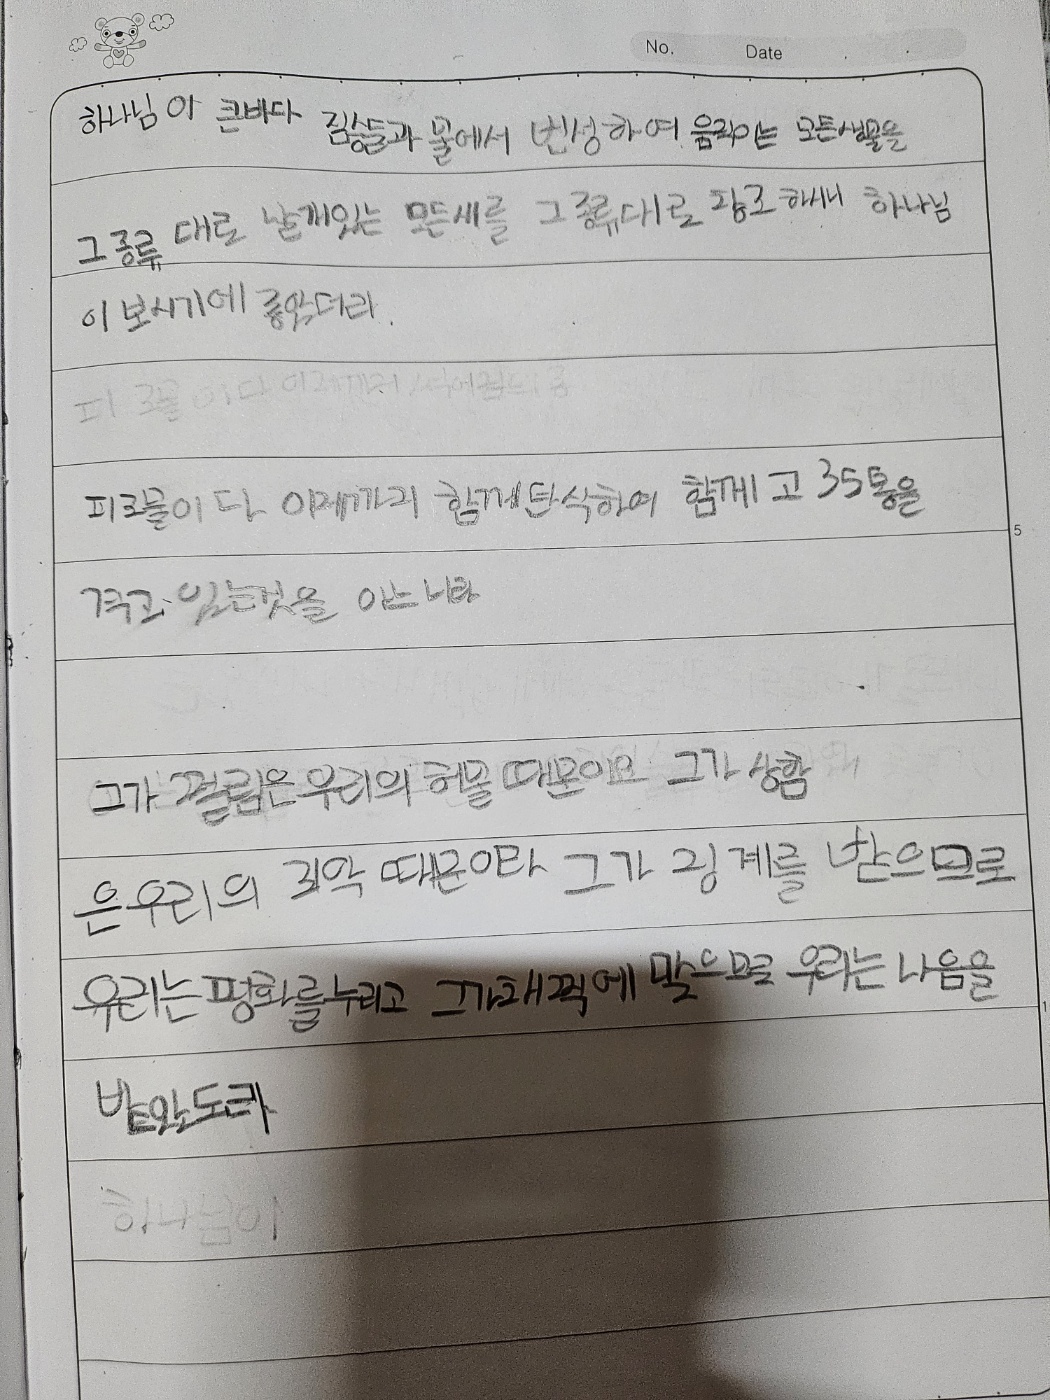 No. Date
하나님이 큰바다 짐승들과 물에서 번성하여 움직이는 모든생물을
그 종류 대로 날개있는 모든새를 그 종류대로 창조하시니 하나님
이 보시기에 좋았더라.
피조물이다 이제까지
피조물이 다 이제까지 함께탄식하여 함께 고35통을
겪고 있는것을 아느니라
5
그가 찔림은 우리의 허물 때문이요 그가 상함
은 우리의 죄악 때문이라 그가 징계를 받으므로
우리는 평화를 누리고 그가채찍에 맞으므로 우리는 나음을
받았도다